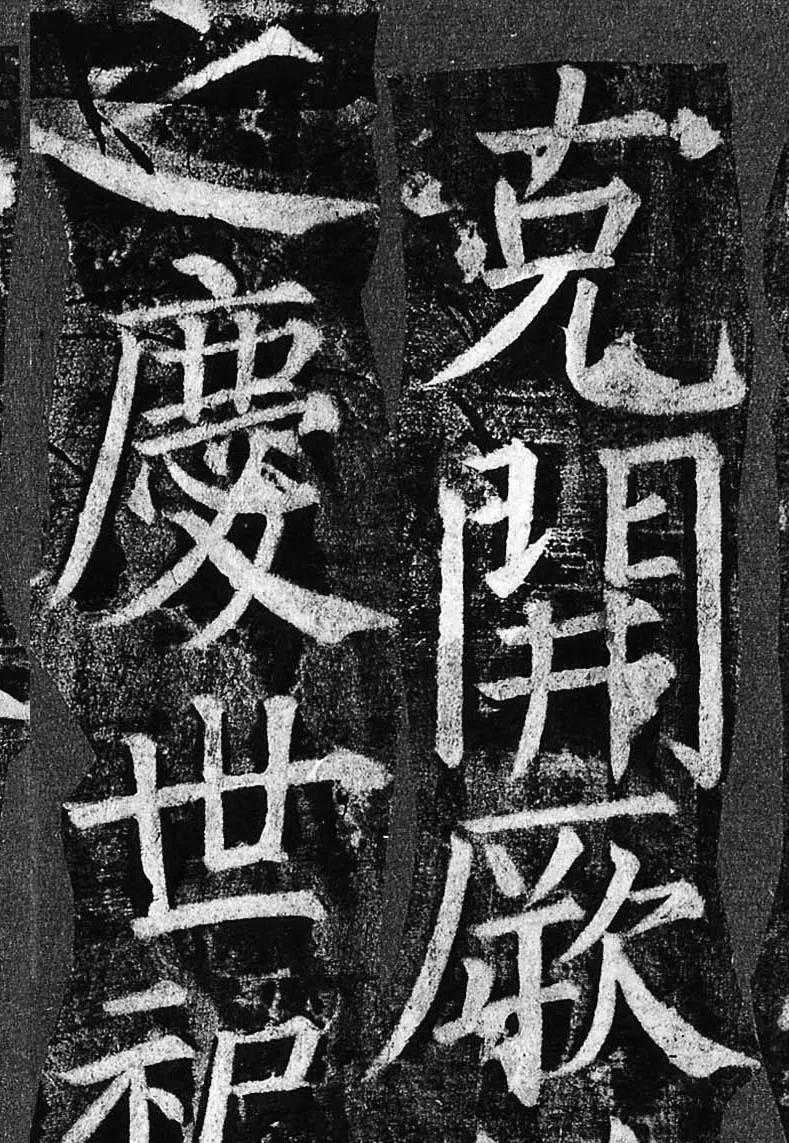 克開厥
之慶世